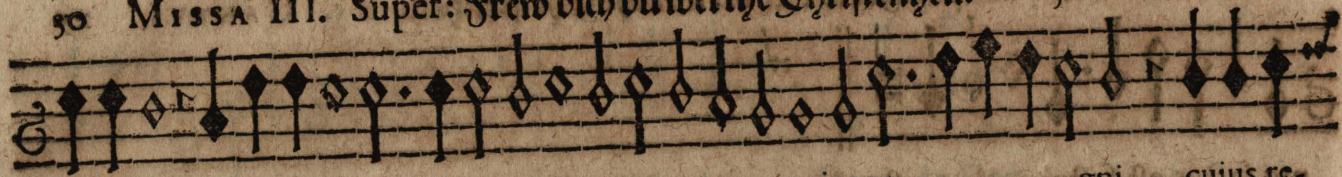 50 MISSA III. Super: Frew dich du werthe Christenheit.
cuius re-